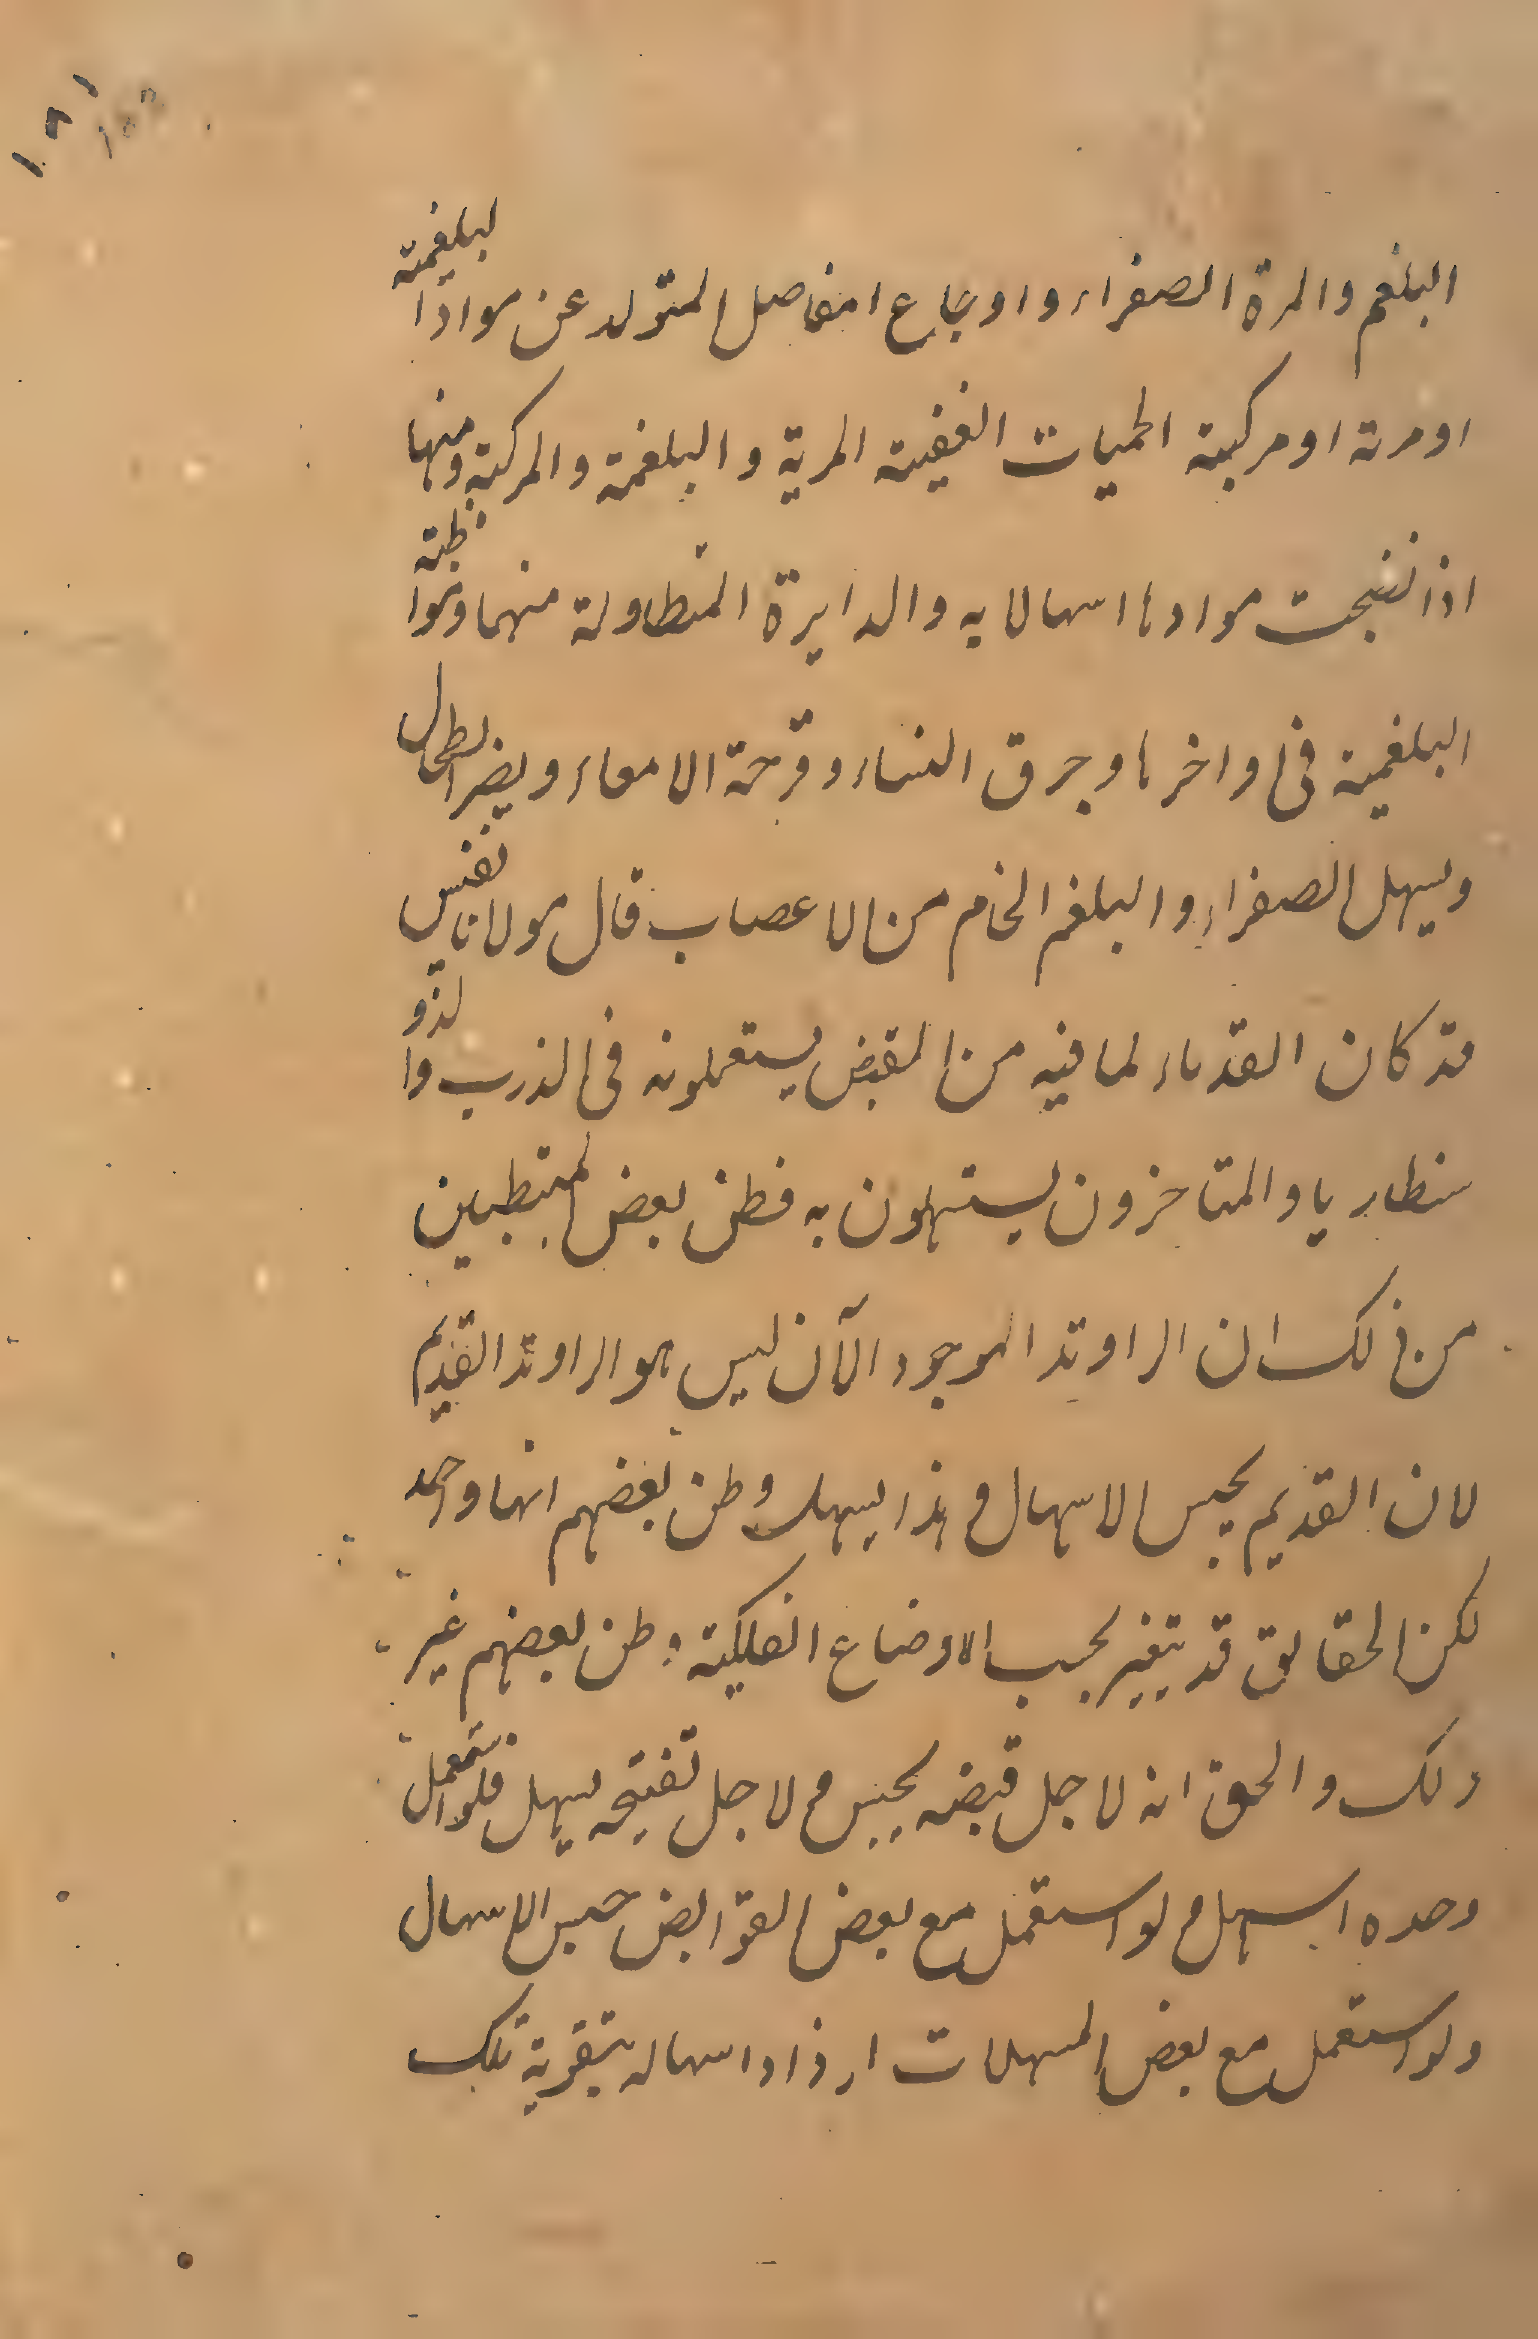 البلغم والمرة الصفراء واوجاع المفاصل المتولد عن مواد البلغمية
او مرية او مركبة الحميات العفينة المرية والبلغمية والمركبة ومنها
اذا نضجت موادها اسهالا به والدايرة المتطاولة منهما ومواظبة
البلغمية فى اواخرها وجرق النساء وقرحة الامعاء ويضر الطحال
ويسهل الصفراء والبلغم الخام من الاعصاب قال مولانا نفيس
قد كان القدماء لما فيه من القبض يستعملونه فى الذرب والذو
سنطاريا والمتاخرون يستهلون به فظن بعض المتطببين
من ذلك ان الراوند الموجود الآن ليس هو الراوند القديم
لان القديم يحبس الاسهال وهذا يسهل وظن بعضهم انها واحد
لكن الحقايق قد يتغير بحسب الاوضاع الفلكية وظن بعضهم غير
ذلك والحق انه لاجل قبضه يحبس ولاجل تفتيحه يسهل فلو استعمل
وحده اسهل ولو استعمل مع بعض القوابض حبس الاسهال
ولو استعمل مع بعض المسهلات ازداد اسهاله بتقوية تلك